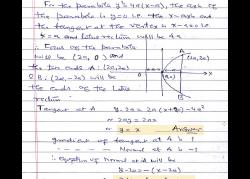 For the parabola y²=4a(x-a), the axis of
the parabola is y=0 i.e. the x-axis and
the tangent at the vertex is x-a=0 i.e.
x=a and latus rectum will be 4a
∴ Focus of the parabola
will be (2a, 0) and
the two ends A: (2a, 2a)
& B: (2a, -2a) will be
the ends of the latus
rectum
Tangent at A
⇒ y = x Answer
gradient of tangent at A is 1
Normal at A is -1
∴ equation of Normal at A will be
y-2a = -(x-2a)